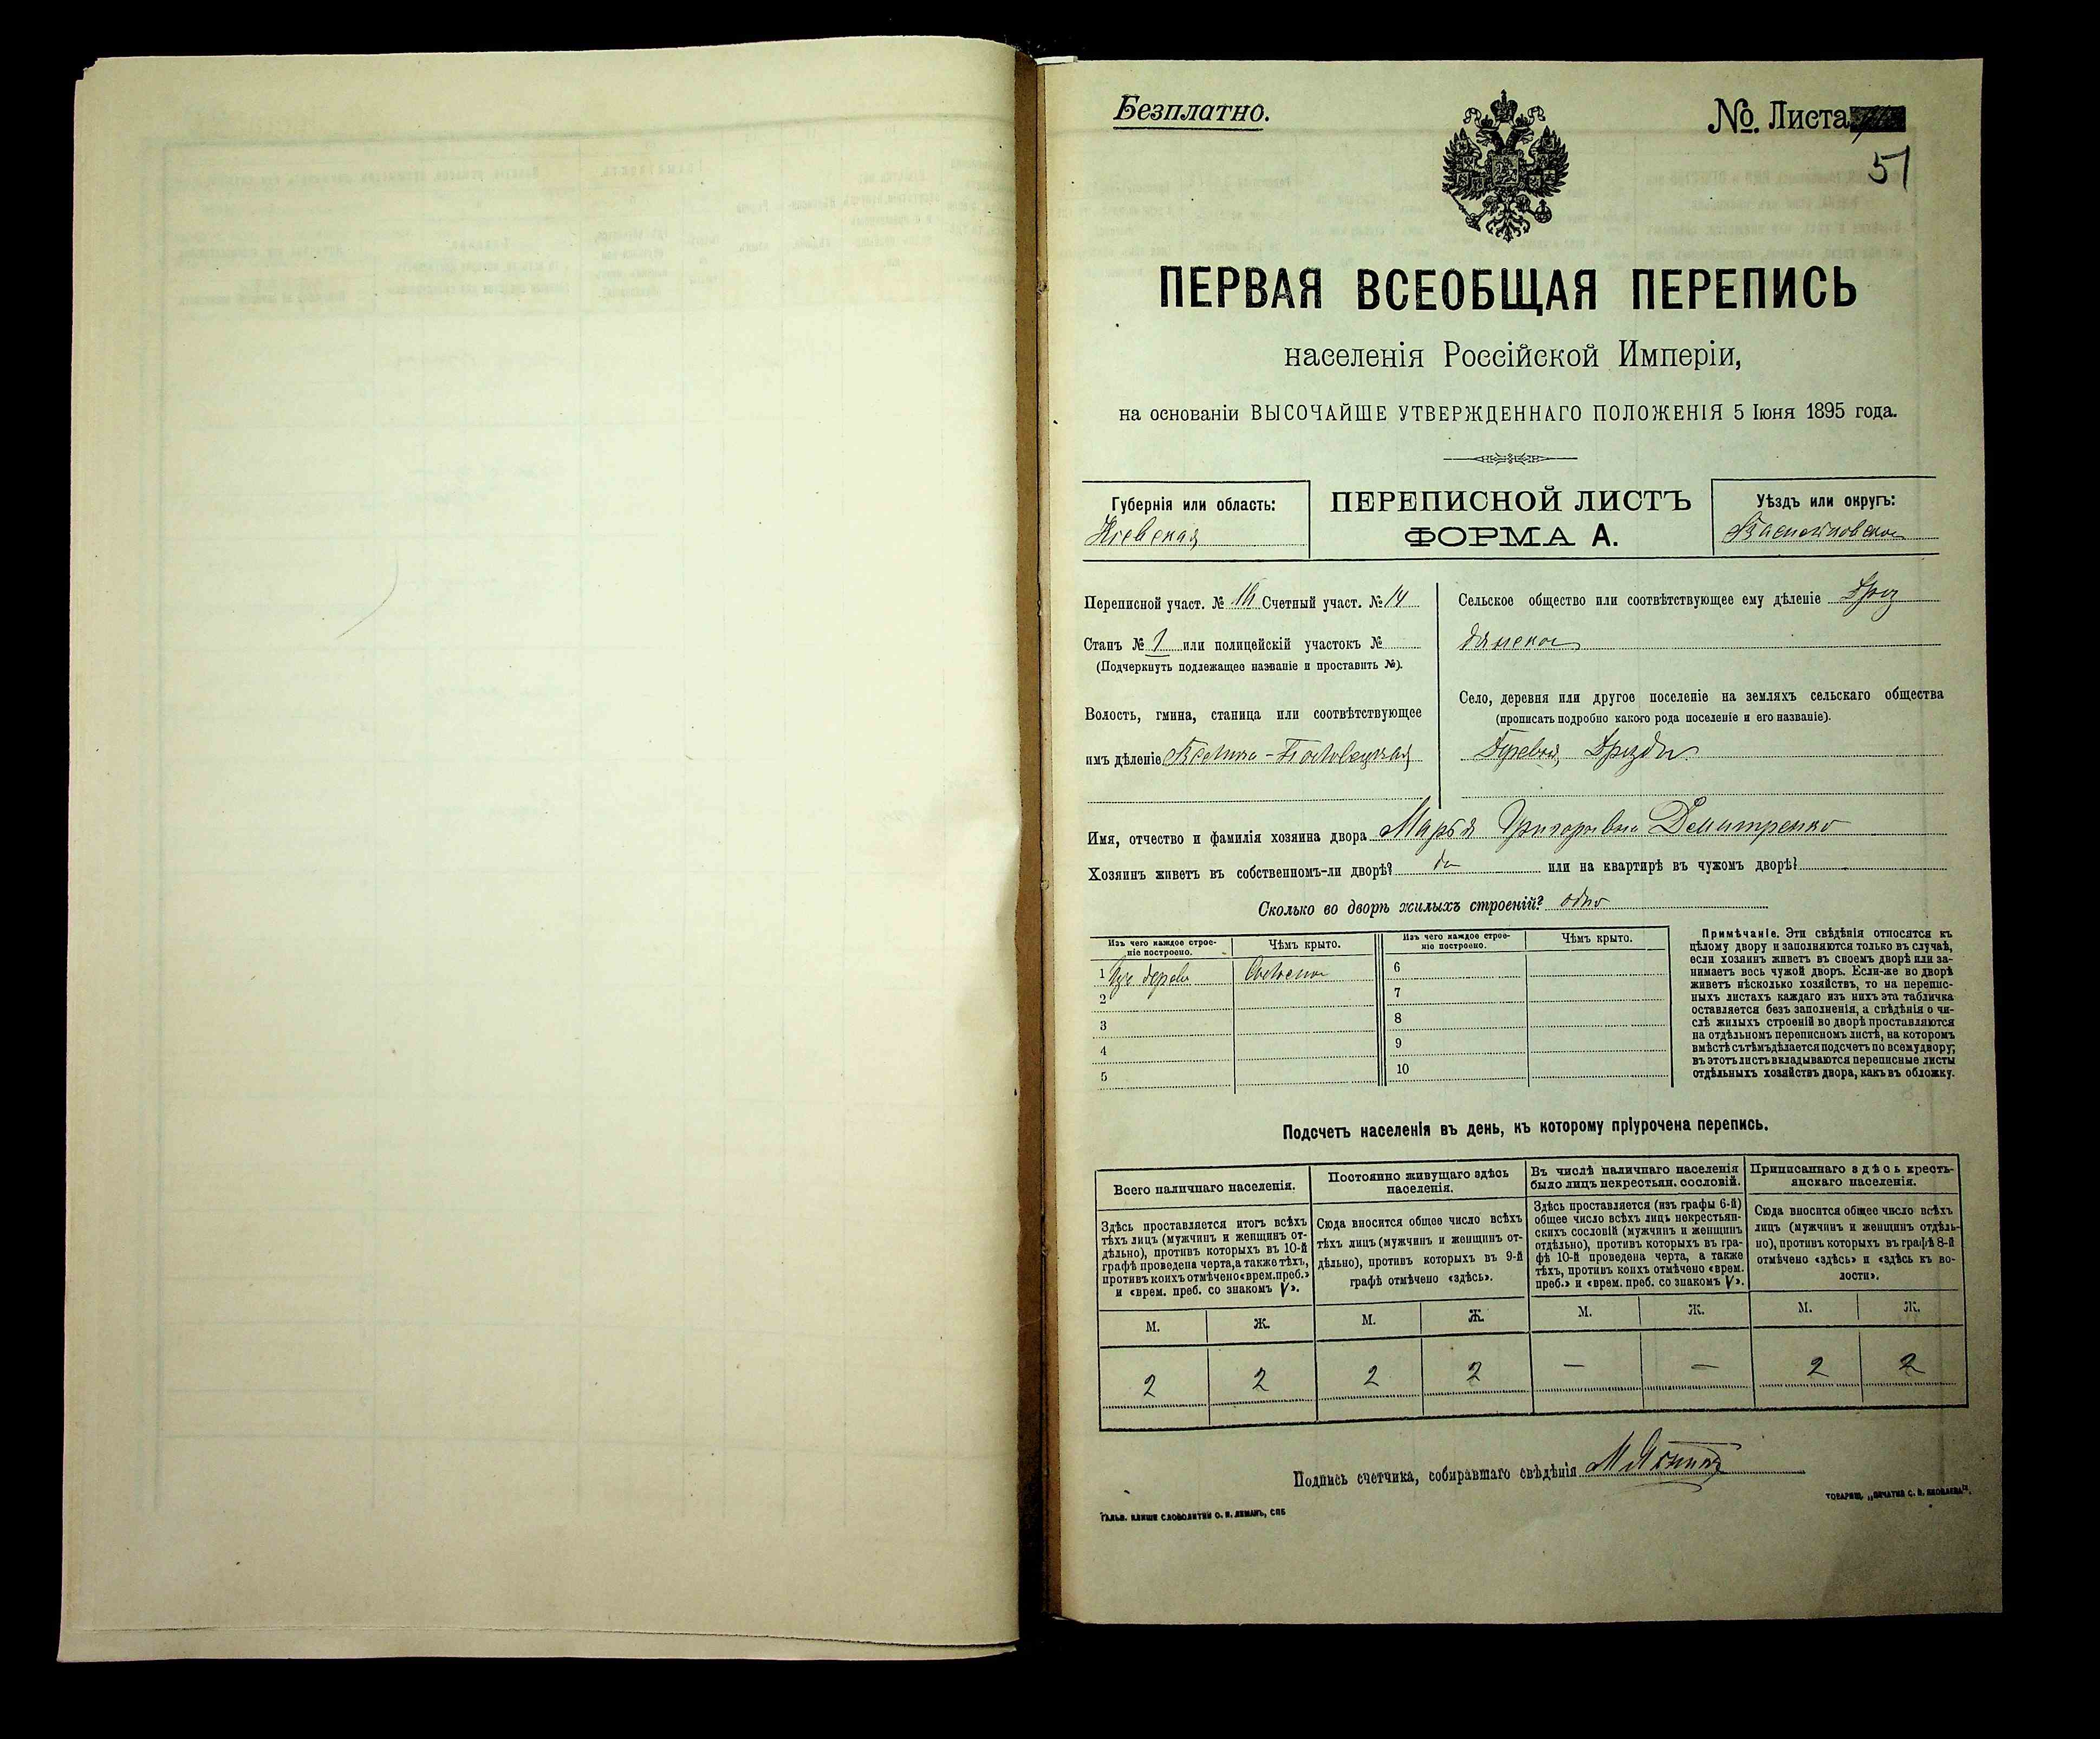 Безплатно.
№. Листа
51
ПЕРВАЯ ВСЕОБЩАЯ ПЕРЕПИСЬ
населенія Россійской Имперіи,
на основаніи ВЫСОЧАЙШЕ УТВЕРЖДЕННАГО ПОЛОЖЕНІЯ 5 Іюня 1895 года.
Губернія или область:
Кіевская
ПЕРЕПИСНОЙ ЛИСТЪ
ФОРМА А.
Уѣздъ или округъ:
Переписной участ. № Счетный участ. № 14
Станъ № 1 или полицейскій участокъ №
(Подчеркнуть подлежащее названіе и проставить №).
Волость, гмина, станица или соотвѣтствующее
имъ дѣленіе Половецкая
Сельское общество или соотвѣтствующее ему дѣленіе Дроз
дянское
Село, деревня или другое поселеніе на земляхъ сельскаго общества
(прописать подробно какого рода поселеніе и его названіе).
Деревня Дрозды
Имя, отчество и фамилія хозяина двора Марья Григорьевна Демитренко
Хозяинъ живетъ въ собственномъ-ли дворѣ? да или на квартирѣ въ чужомъ дворѣ?
Сколько во дворѣ жилыхъ строеній? одно
Изъ чего каждое строе-
ніе построено.
Чѣмъ крыто.
1 Изъ дерева Соломою
2
3
4
5
Изъ чего каждое строе-
ніе построено.
Чѣмъ крыто.
6
7
8
9
10
Примѣчаніе. Эти свѣдѣнія относятся къ
цѣлому двору и заполняются только въ случаѣ,
если хозяинъ живетъ въ своемъ дворѣ или за-
нимаетъ весь чужой дворъ. Если-же во дворѣ
живетъ нѣсколько хозяйствъ, то на перепис-
ныхъ листахъ каждаго изъ нихъ эта табличка
оставляется безъ заполненія, а свѣдѣнія о чи-
слѣ жилыхъ строеній во дворѣ проставляются
на отдѣльномъ переписномъ листѣ, на которомъ
вмѣстѣ съ тѣмъ дѣлается подсчетъ по всему двору;
въ этотъ листъ вкладываются переписные листы
отдѣльныхъ хозяйствъ двора, какъ въ обложку.
Подсчетъ населенія въ день, къ которому пріурочена перепись.
Всего наличнаго населенія.
Здѣсь проставляется итогъ всѣхъ
тѣхъ лицъ (мужчинъ и женщинъ от-
дѣльно), противъ которыхъ въ 10-й
графѣ проведена черта, а также тѣхъ,
противъ коихъ отмѣчено «врем. преб.»
и «врем. преб. со знакомъ V».
М. Ж.
2 2
Постоянно живущаго здѣсь
населенія.
Сюда вносится общее число всѣхъ
тѣхъ лицъ (мужчинъ и женщинъ от-
дѣльно), противъ которыхъ въ 9-й
графѣ отмѣчено «здѣсь».
М. Ж.
2 2
Въ числѣ наличнаго населенія
было лицъ некрестьян. сословій.
Здѣсь проставляется (изъ графы 6-й)
общее число всѣхъ лицъ некрестьян-
скихъ сословій (мужчинъ и женщинъ
отдѣльно), противъ которыхъ въ гра-
фѣ 10-й проведена черта, а также
тѣхъ, противъ коихъ отмѣчено «врем.
преб.» и «врем. преб. со знакомъ V».
М. Ж.
— —
Приписаннаго здѣсь кресть-
янскаго населенія.
Сюда вносится общее число всѣхъ
лицъ (мужчинъ и женщинъ отдѣль-
но), противъ которыхъ въ графѣ 8-й
отмѣчено «здѣсь» и «здѣсь къ во-
лости».
М. Ж.
2 2
Подпись счетчика, собиравшаго свѣдѣнія
ГАЛЬВ. КЛИШЕ СЛОВОЛИТНИ О. И. ЛЕМАНЪ, СПБ
ТОВАРИЩ. „ПЕЧАТНЯ С. П. ЯКОВЛЕВА“.